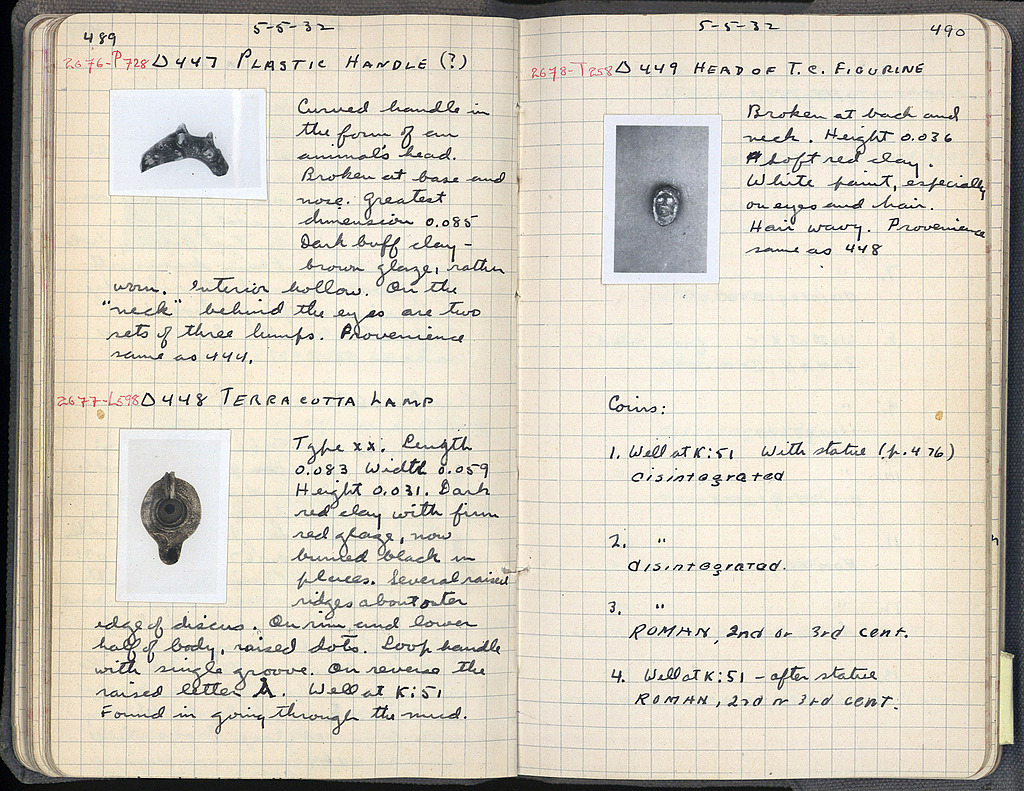 489
5-5-32
2676-P728 Δ 447 PLASTIC HANDLE (?)
Curved handle in
the form of an
animal's head.
Broken at base and
nose. Greatest
dimension 0.085
Dark buff clay –
brown glaze, rather
worn. Interior hollow. On the
"neck" behind the eyes are two
sets of three lumps. Provenience
same as 444.
2677-L598 Δ 448 TERRACOTTA LAMP
Type XX. Length
0.083 Width 0.059
Height 0.031. Dark
red clay with firm
red glaze, now
burned black in
places. Several raised
ridges about outer
edge of discus. On rim and lower
half of body, raised dots. Loop handle
with single groove. On reverse the
raised letter A. Well at K:51
Found in going through the mud.
5-5-32
490
2678-T258 Δ 449 HEAD OF T.C. FIGURINE
Broken at back and
neck. Height 0.036
Soft red clay.
White paint, especially
on eyes and hair.
Hair wavy. Provenience
same as 448
Coins:
1. Well at K:51 With statue (p. 476)
disintegrated
2. "
disintegrated.
3. "
ROMAN, 2nd or 3rd cent.
4. Well at K:51 – after statue
ROMAN, 2nd or 3rd cent.